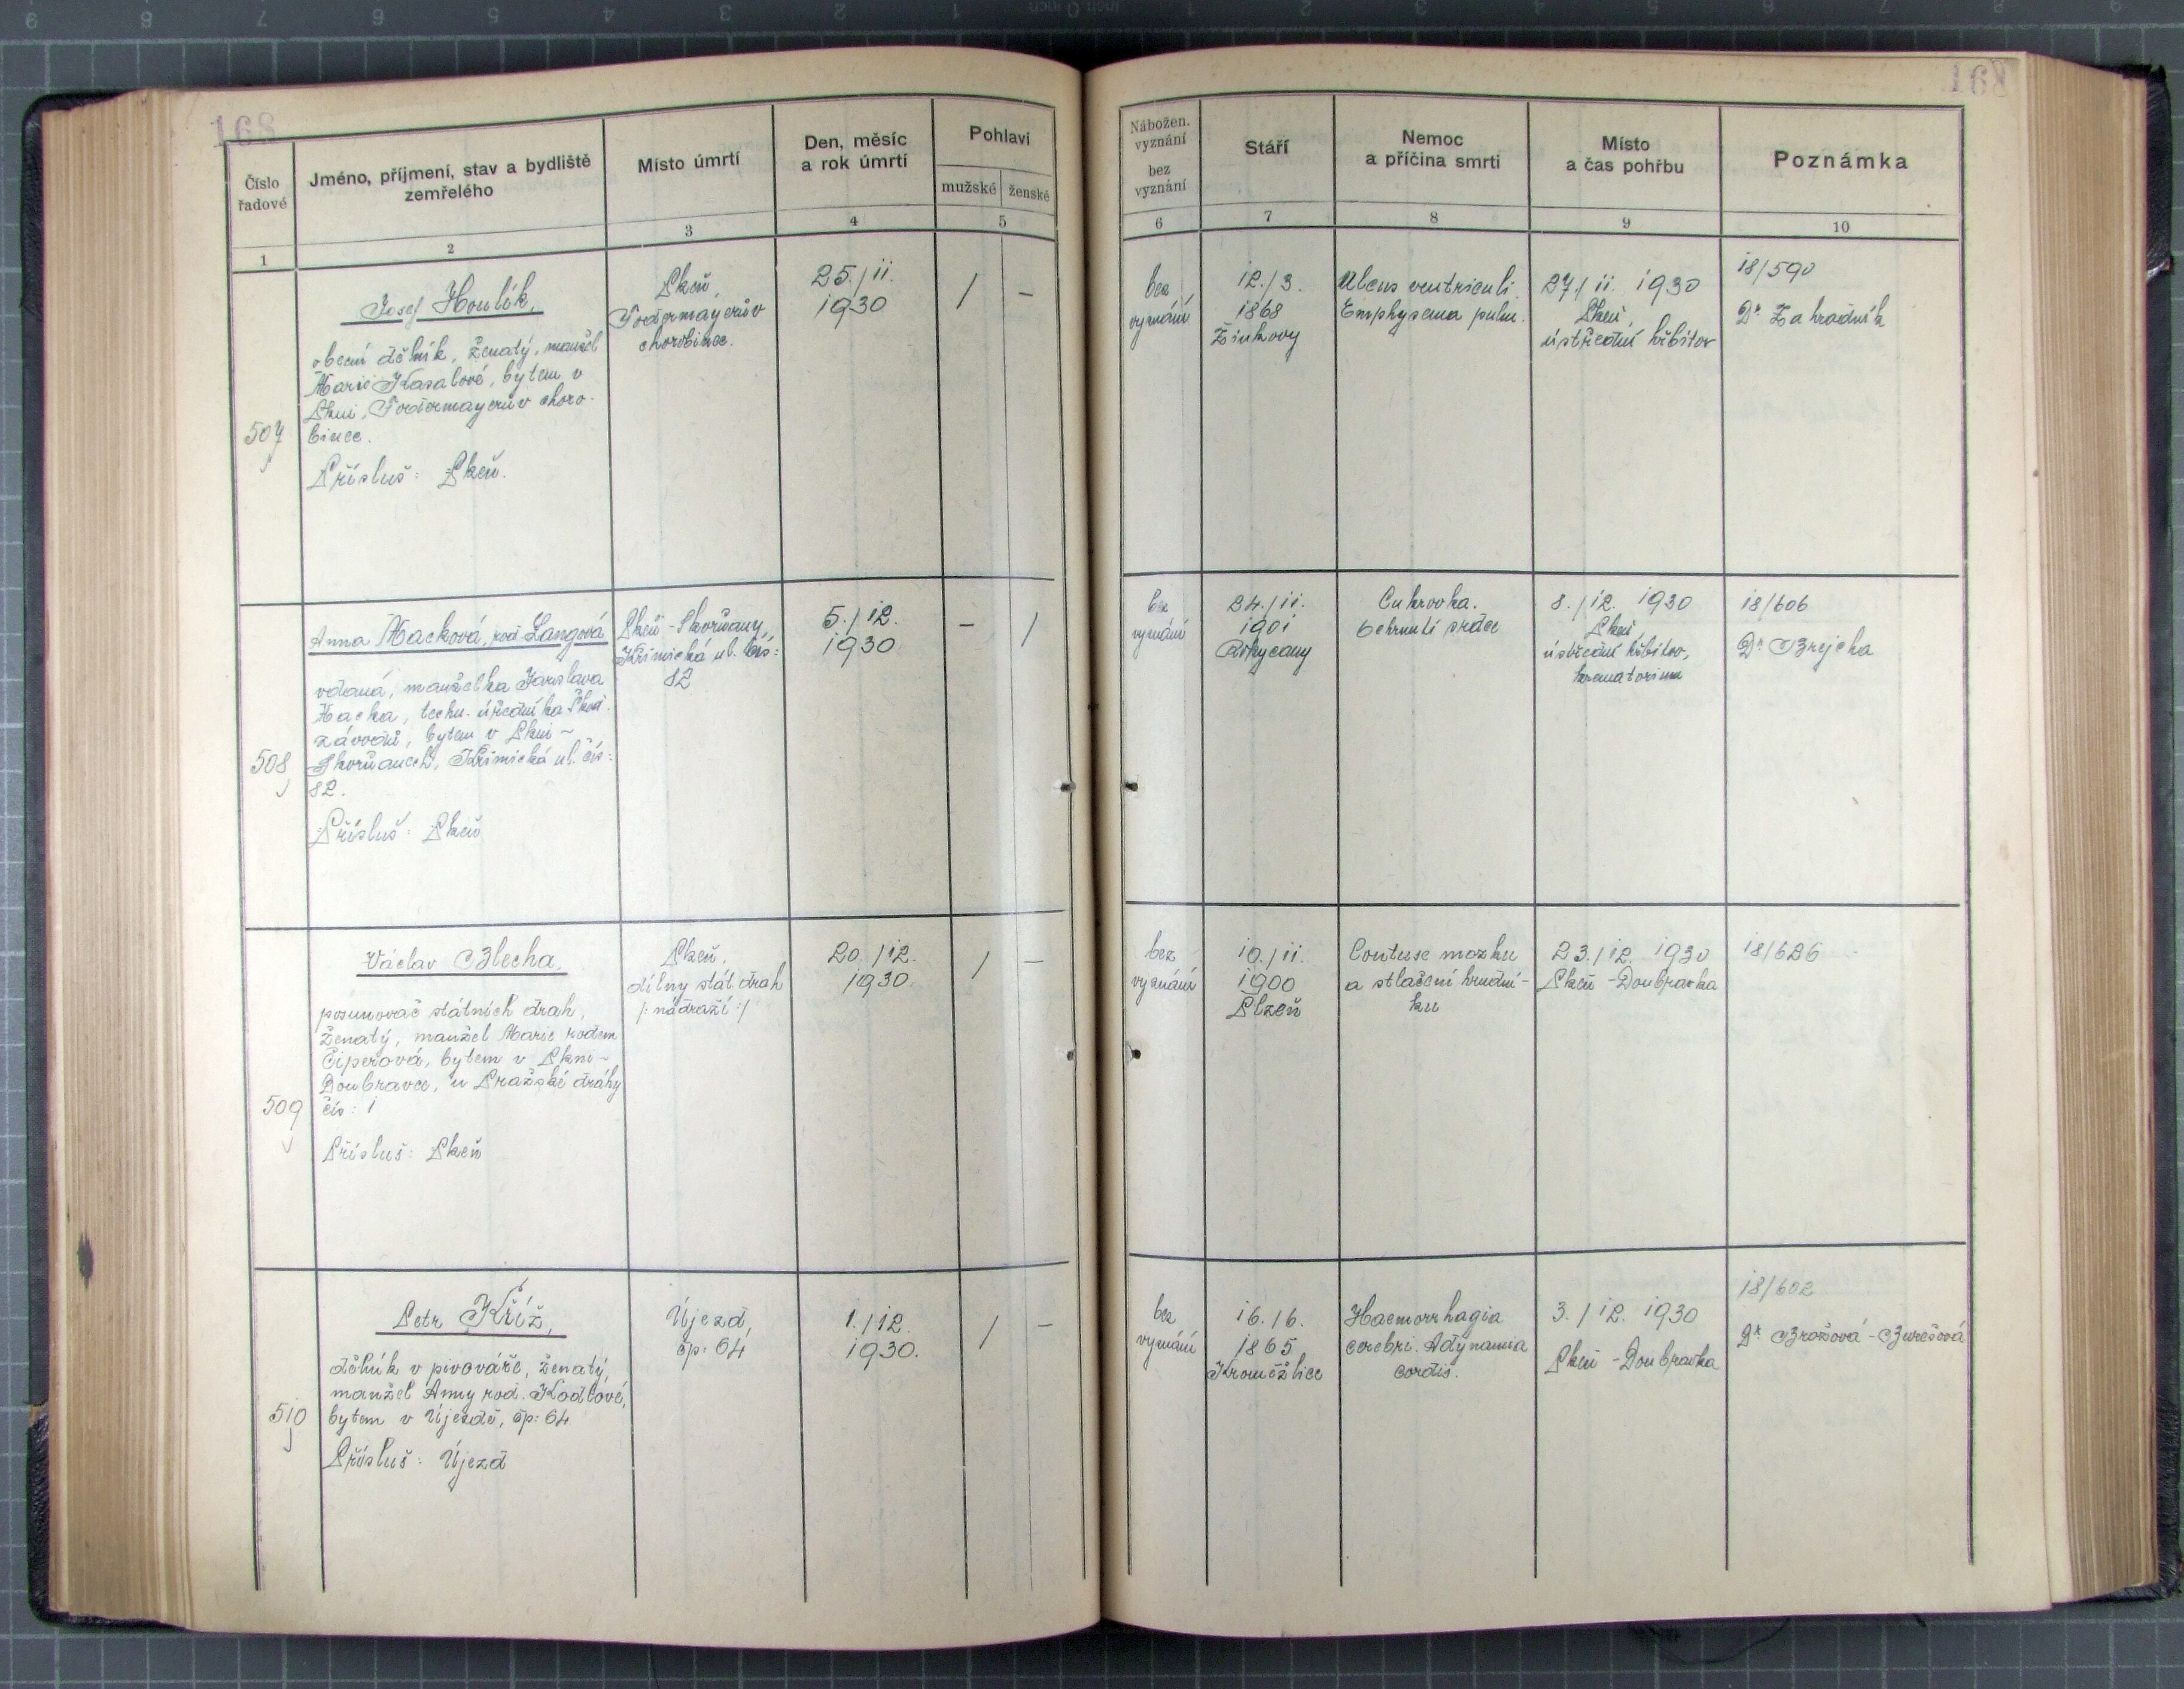 168
168
Číslo
řadové
Jméno, příjmení, stav a bydliště
zemřelého
Místo úmrtí
Den, měsíc
a rok úmrtí
Pohlaví
mužské
ženské
Nábožen.
vyznání
bez
vyznání
Stáří
Nemoc
a příčina smrti
Místo
a čas pohřbu
Poznámka
1
2
3
4
5
6
7
8
9
10
507
Josef Houlík,
obecní dělník, ženatý, manžel
Marie Kasalové, bytem v
Plzni, Todermayerův choro-
binec.
Přísluš: Plzeň.
Plzeň,
Todermayerův
chorobinec.
25./11.
1930
/
-
bez
vyznání
12./3.
1868
Žinkovy
Ulcus ventriculi.
Emphysema pulm.
27./11. 1930
Plzeň,
ústřední hřbitov
18/590
Dr Zahradník
508
Anna Macková, rod. Langová
vdaná, manželka Jaroslava
Macka, techn. úředníka Škod.
závodů, bytem v Plzni-
Skvrňanech, Křimická ul. čís:
82.
Přísluš: Plzeň
Plzeň-Skvrňany,
Křimická ul. čís:
82
5./12.
1930
-
/
bez
vyznání
24./11.
1901
Rokycany
Cukrovka.
Ochrnutí srdce
8./12. 1930
Plzeň,
ústřední hřbitov,
krematorium
18/606
Dr Brejcha
509
Václav Blecha,
posunovač státních drah,
ženatý, manžel Marie rodem
Čiperová, bytem v Plzni-
Doubravce, u Pražské dráhy
čís: 1
Přísluš: Plzeň
Plzeň,
dílny stát. drah
/: nádraží :/
20./12.
1930.
/
-
bez
vyznání
10./11.
1900
Plzeň
Contuse mozku
a stlačení hrudní-
ku
23./12. 1930
Plzeň-Doubravka
18/626
510
Petr Kříž,
dělník v pivováře, ženatý,
manžel Anny rod. Kodlové,
bytem v Újezdě, čp: 64
Přísluš: Újezd
Újezd,
čp: 64
1./12.
1930.
/
-
bez
vyznání
16./6.
1865
Kroměžlice
Haemorrhagia
cerebri. Adynamia
cordis.
3./12. 1930
Plzeň-Doubravka
18/602
Dr Brožová-Burešová